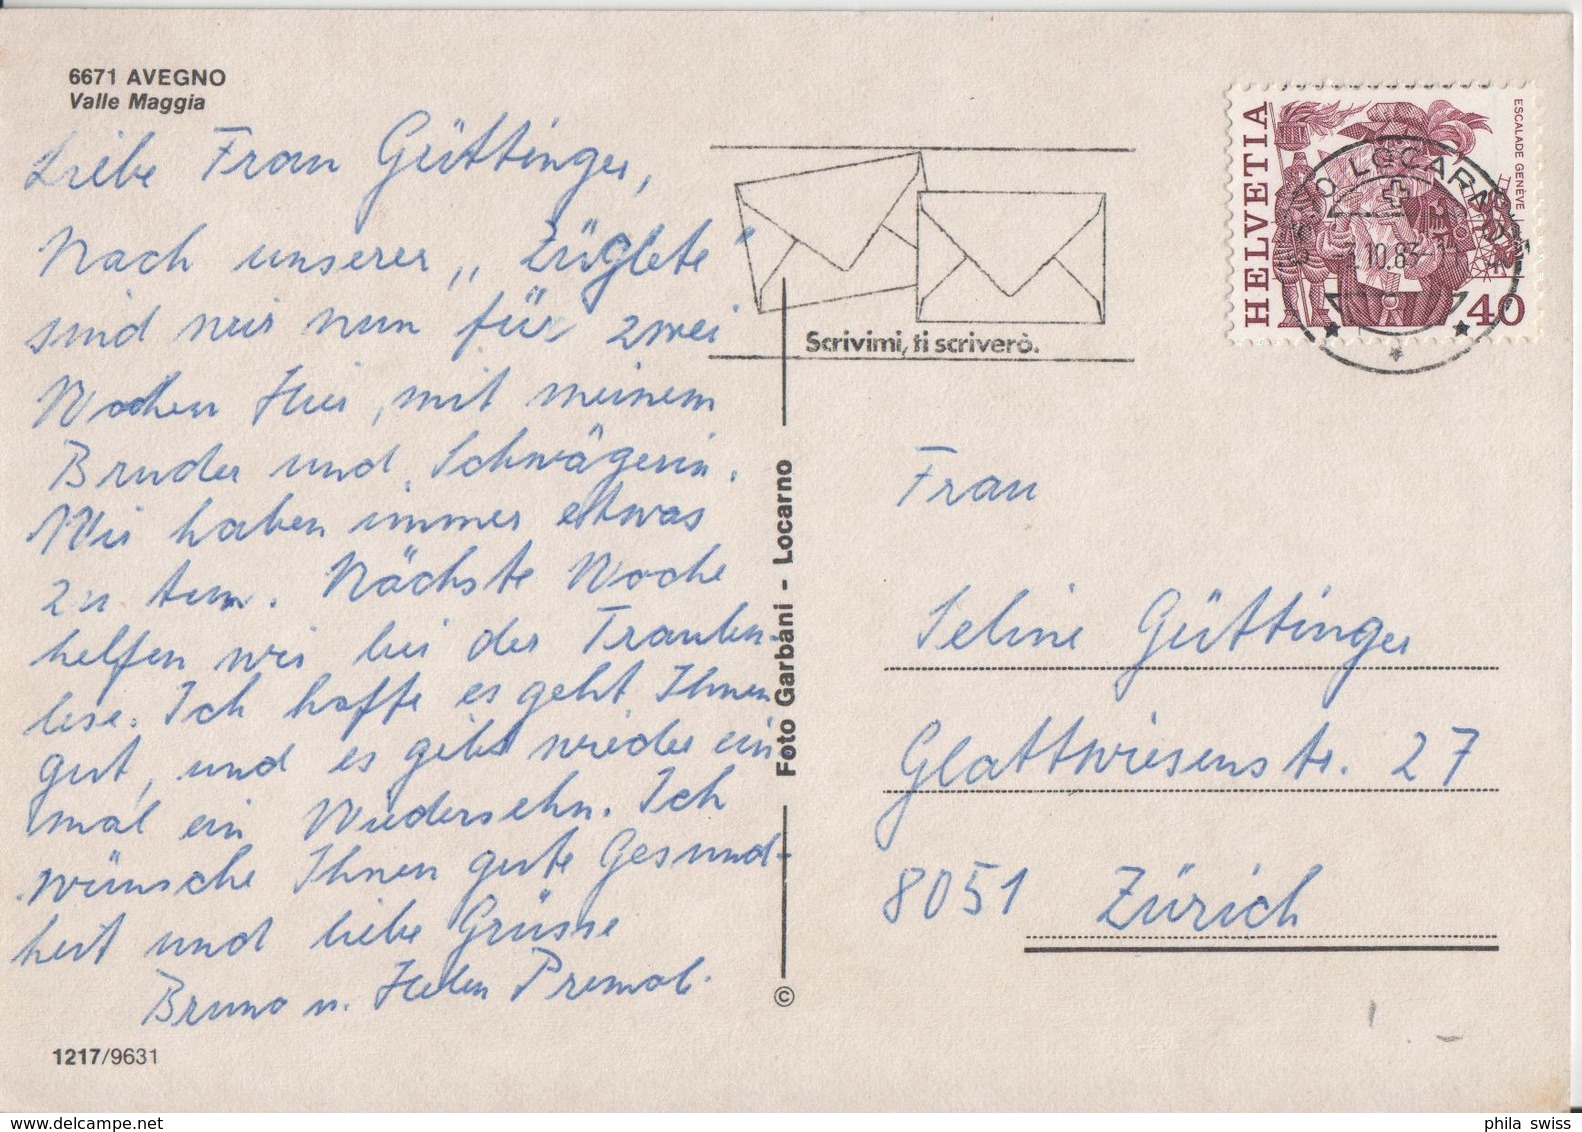 6671 AVEGNO
Valle Maggia
Liebe Frau Güttinger,
Nach unserer „Züglete"
sind wir nun für zwei
Wochen Hier, mit meinem
Bruder und Schwägerin.
Wir haben immer etwas
zu tun. Nächste Woche
helfen wir bei der Trauben-
lese. Ich hoffe es geht Ihnen
gut, und es gibt wieder ein
mal ein Wiedersehn. Ich
wünsche Ihnen gute Gesund-
heit und liebe Grüsse
Bruno u. Helen
1217/9631
Foto Garbani - Locarno
©
Scrivimi, ti scriverò.
HELVETIA
ESCALADE GENÈVE
40
LOCARNO
10.83
Frau
Seline Güttinger
Glattwiesenstr. 27
8051 Zürich
phila swiss